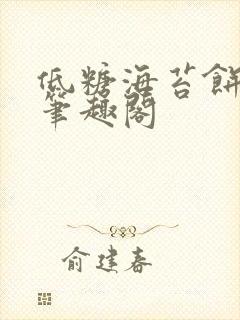 低糖海苔餅
筆趣閣
俞建春